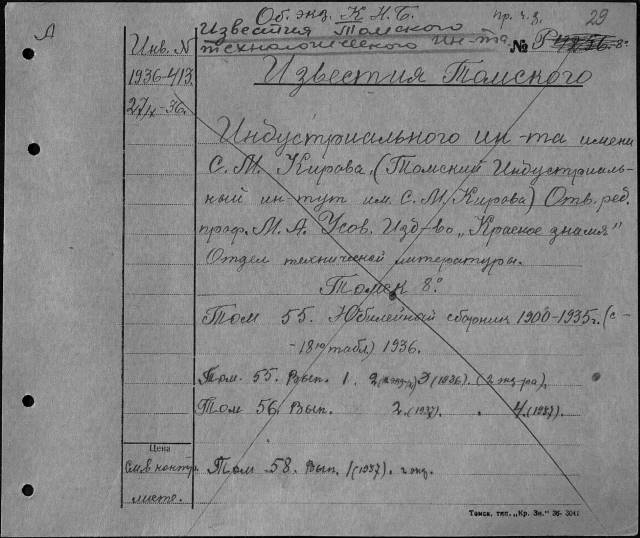 Л
Об. экз. К Н.Б.
пр. ч. з.
29
Известия Томского
технологического ин-та
№ Р
Инв. N
1936-413
27/IX-36.
Известия Томского
Индустриального ин-та имени
С. М. Кирова, (Томский Индустриаль-
ный ин-тут им. С. М. Кирова) Отв. ред.
проф. М. А. Усов. Изд-во „Красное знамя"
Отдел технической литературы.
Томск 8°.
Том 55. Юбилейный сборник 1900-1935г. (с
табл) 1936.
Том. 55. Вып. 1. 2 3 (1936). (2 экз-ра).
Том 56 Вып. 2. (1937). 4. (1937).
Цена
См. в контор.
листе.
Том 58. Вып. 1 (1937). 2 экз.
Томск, тип. „Кр. Зн." 36- 3041